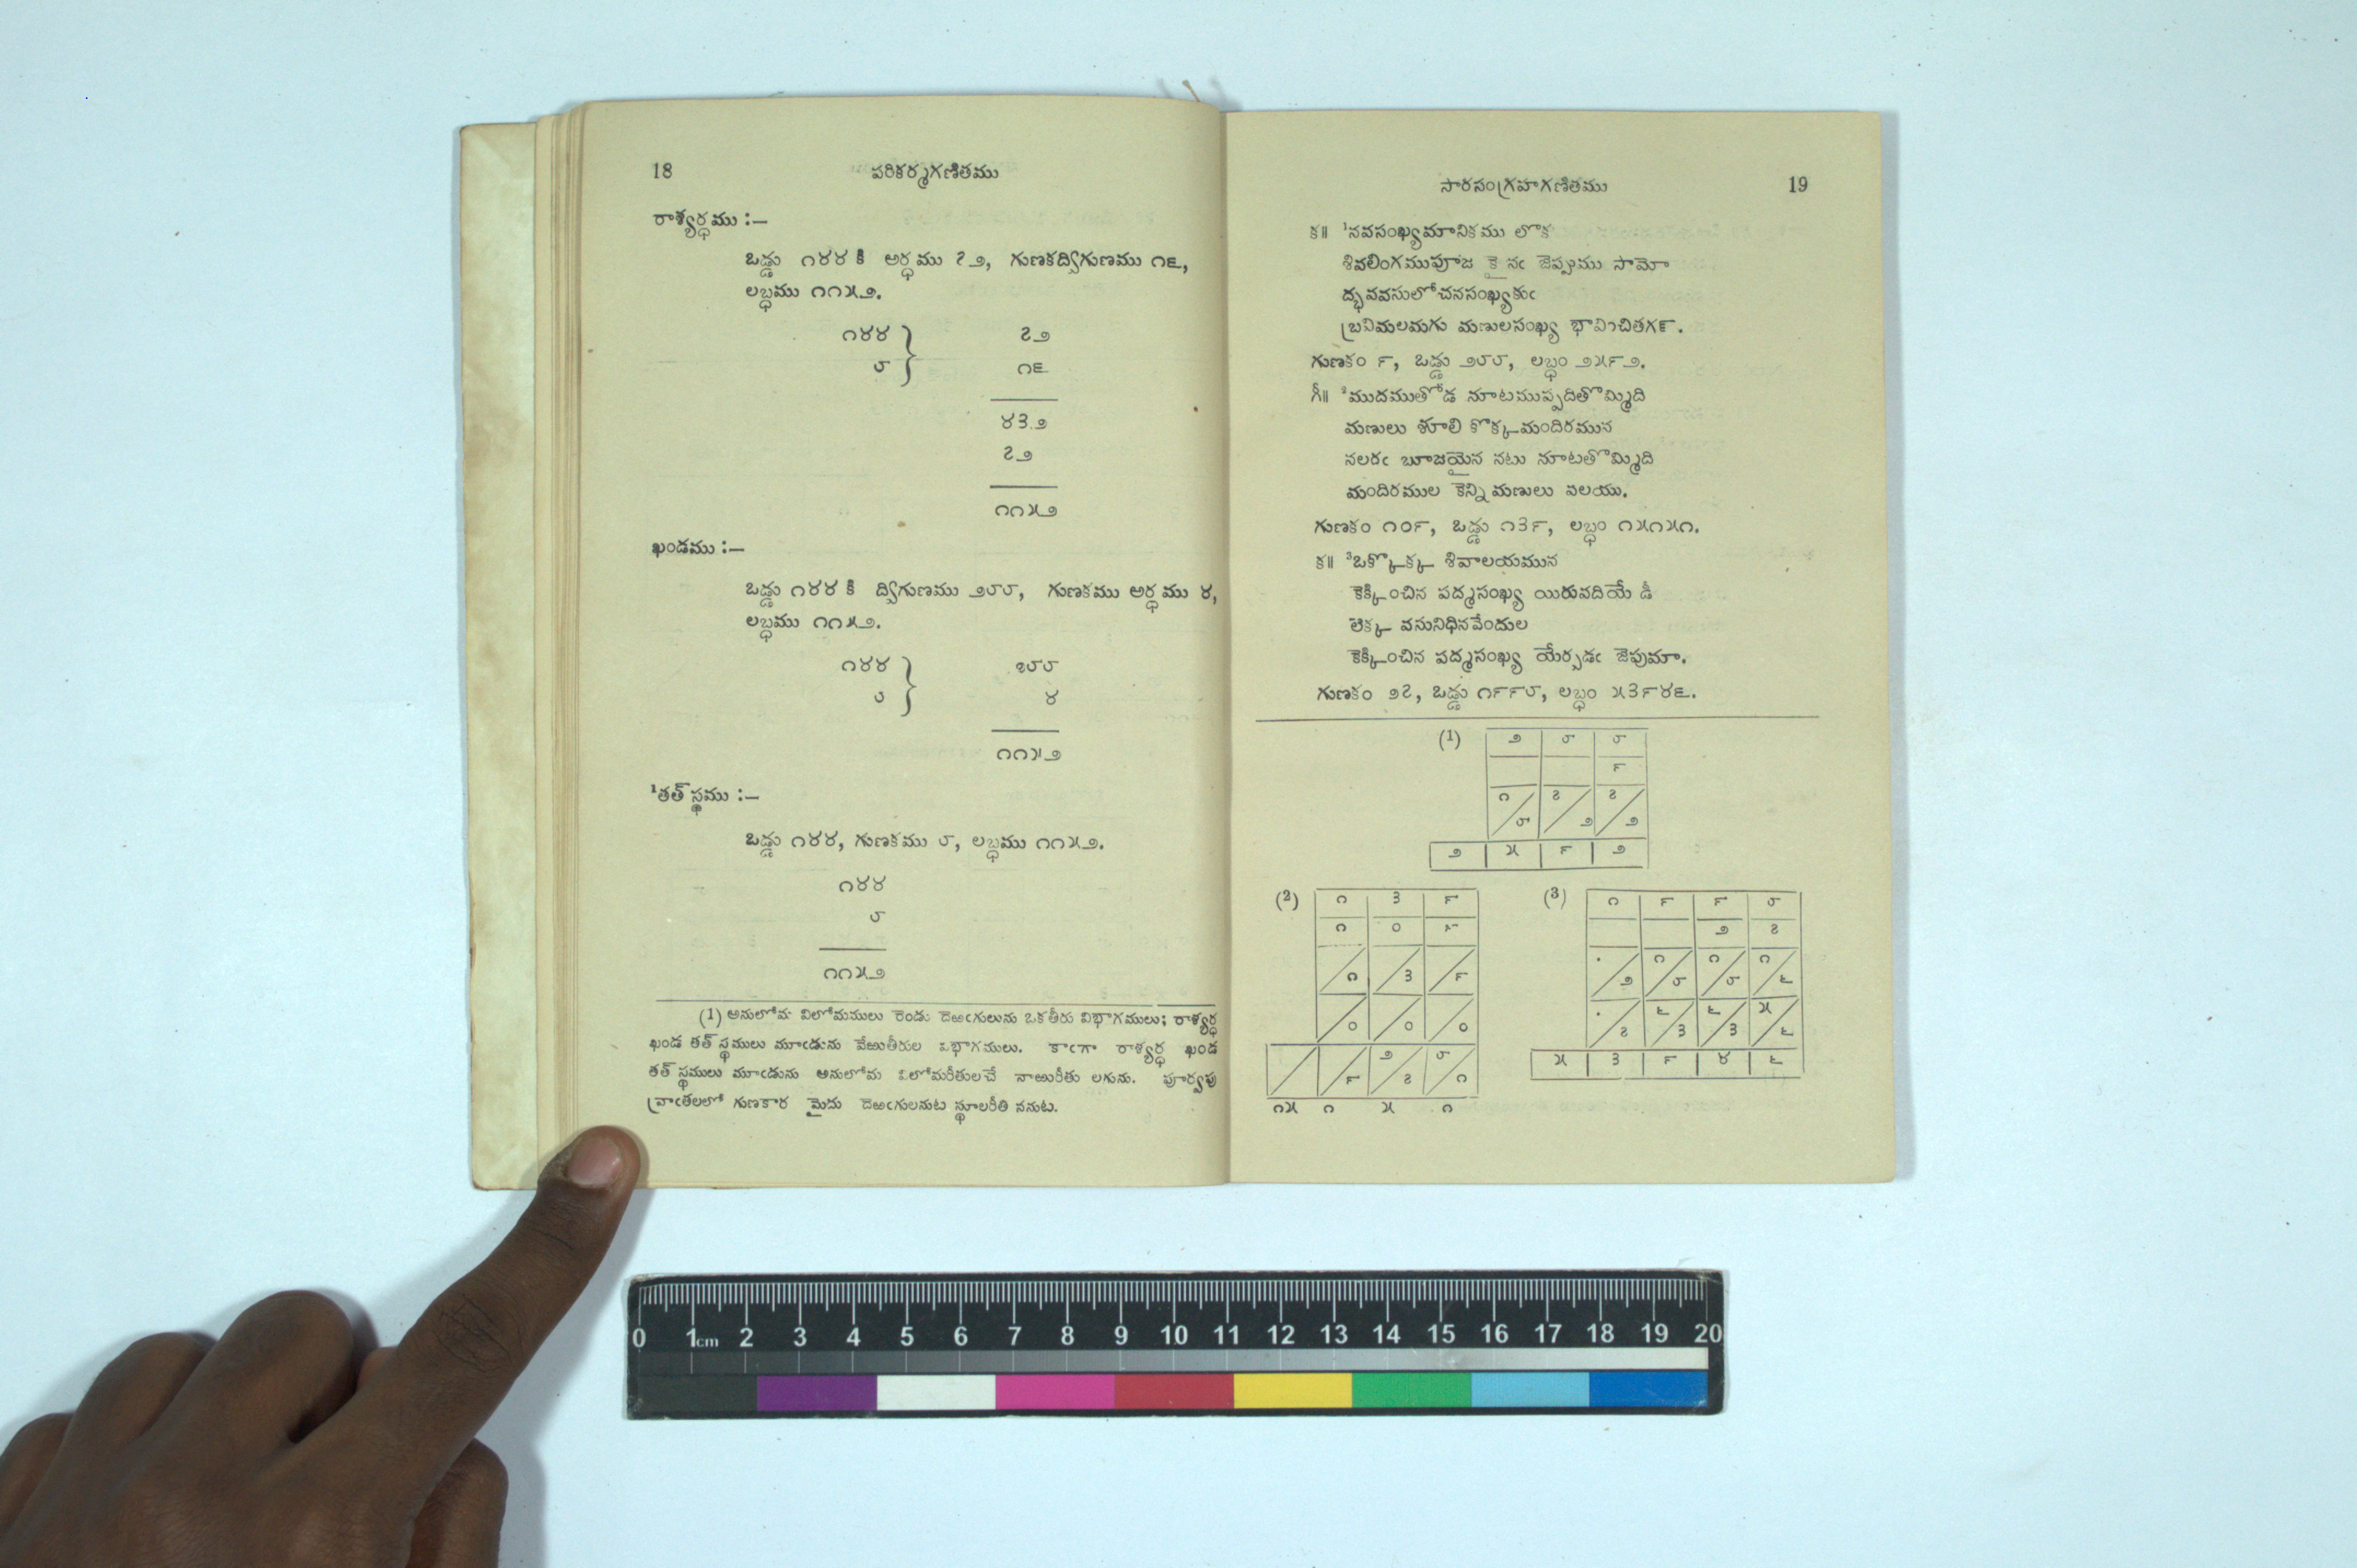 18
పరికర్మగణితము
రాశ్యర్ధము :—
ఒడ్డు ౧౪౪ కి అర్ధము ౭౨, గుణకద్విగుణము ౧౬,
లబ్ధము ౧౧౫౨.
౧౪౪ } ౭౨
౮ ౧౬
౪౩౨
౭౨
౧౧౫౨
ఖండము :—
ఒడ్డు ౧౪౪ కి ద్విగుణము ౨౮౮, గుణకము అర్ధము ౪,
లబ్ధము ౧౧౫౨.
౧౪౪ } ౨౮౮
౮ ౪
౧౧౫౨
¹తత్ స్థము :—
ఒడ్డు ౧౪౪, గుణకము ౮, లబ్ధము ౧౧౫౨.
౧౪౪
౮
౧౧౫౨
(1) అనులోమ విలోమములు రెండు దెఱఁగులును ఒకతీరు విభాగములు; రాశ్యర్ధ
ఖండ తత్ స్థములు మూఁడును వేఱుతీరుల విభాగములు. కాఁగా రాశ్యర్ధ ఖండ
తత్ స్థములు మూఁడును అనులోమ విలోమరీతులచే నాఱురీతు లగును. పూర్వపు
వ్రాఁతలలో గుణకార మైదు దెఱఁగులనుట స్థూలరీతి ననుట.
సారసంగ్రహగణితము
19
క॥ ¹నవసంఖ్యమానికము లొక
శివలింగముపూజ కై నఁ జెప్పుము సామో
ద్భవవసులోచనసంఖ్యకుఁ
బ్రవిమలమగు మణులసంఖ్య భావించితగ౯.
గుణకం ౯, ఒడ్డు ౨౮౮, లబ్ధం ౨౫౯౨.
గీ॥ ²ముదముతోడ నూటముప్పదితొమ్మిది
మణులు శూలి కొక్క మందిరమున
నలరఁ బూజయైన నటు నూటతొమ్మిది
మందిరముల కెన్ని మణులు వలయు.
గుణకం ౧౦౯, ఒడ్డు ౧౩౯, లబ్ధం ౧౫౧౫౧.
క॥ ³ఒక్కొక్క శివాలయమున
కెక్కించిన పద్మసంఖ్య యిరువదియే డీ
లెక్క వసునిధినవేందుల
కెక్కించిన పద్మసంఖ్య యేర్పడఁ జెపుమా.
గుణకం ౨౭, ఒడ్డు ౧౯౯౮, లబ్ధం ౫౩౯౪౬.
(1)
౨ ౮ ౮
౯
౧ ౭ ౭
౮ ౨ ౨
౨ ౫ ౯ ౨
(2)
౧ ౩ ౯
౧ ౦ ౯
౧ ౩ ౯
౦ ౦ ౦
౨ ౮
౯ ౭ ౧
౧౫ ౧ ౫ ౧
(3)
౧ ౯ ౯ ౮
౨ ౭
· ౧ ౧ ౧
౨ ౮ ౮ ౬
· ౬ ౬ ౫
౭ ౩ ౩ ౬
౫ ౩ ౯ ౪ ౬
0 1cm 2 3 4 5 6 7 8 9 10 11 12 13 14 15 16 17 18 19 20